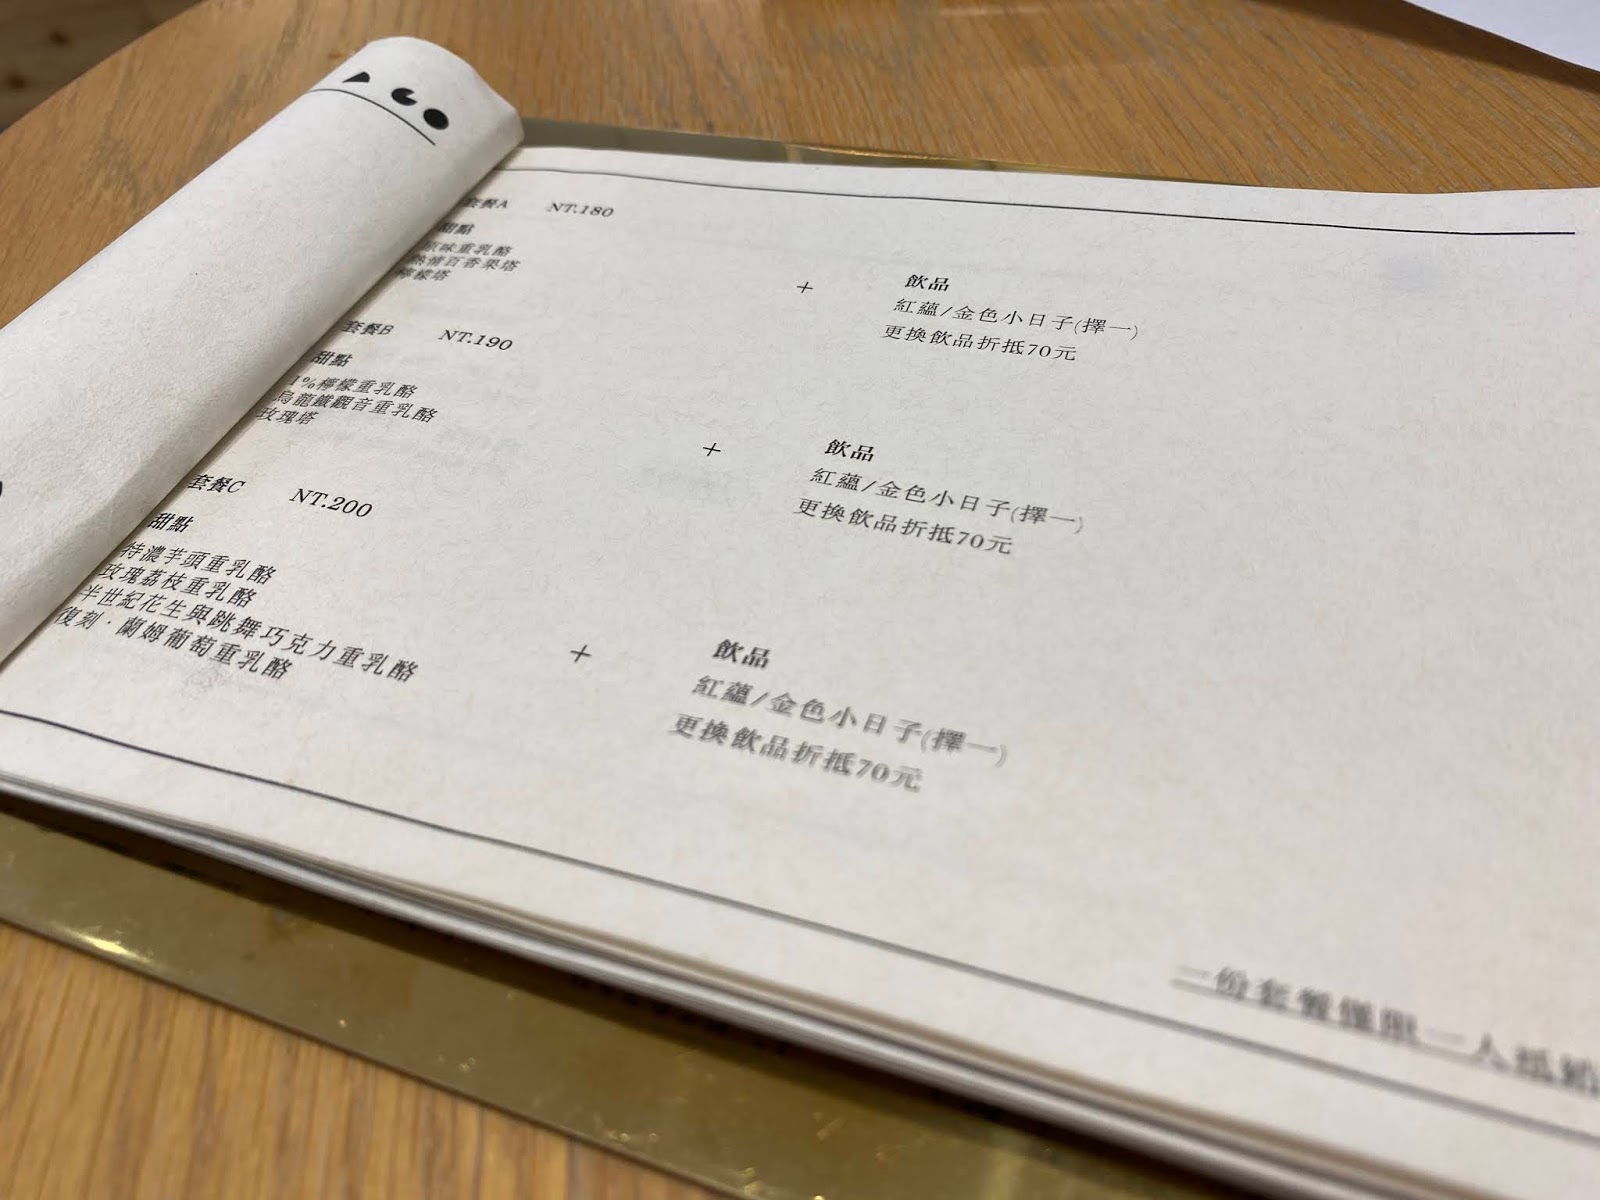 套餐A NT.180
甜點
原味重乳酪
熱情百香果塔
檸檬塔
+
飲品
紅蘊/金色小日子(擇一)
更換飲品折抵70元
套餐B NT.190
甜點
1%檸檬重乳酪
烏龍鐵觀音重乳酪
玫瑰塔
+
飲品
紅蘊/金色小日子(擇一)
更換飲品折抵70元
套餐C NT.200
甜點
特濃芋頭重乳酪
玫瑰荔枝重乳酪
半世紀花生與跳舞巧克力重乳酪
復刻·蘭姆葡萄重乳酪
+
飲品
紅蘊/金色小日子(擇一)
更換飲品折抵70元
一份套餐僅限一人抵